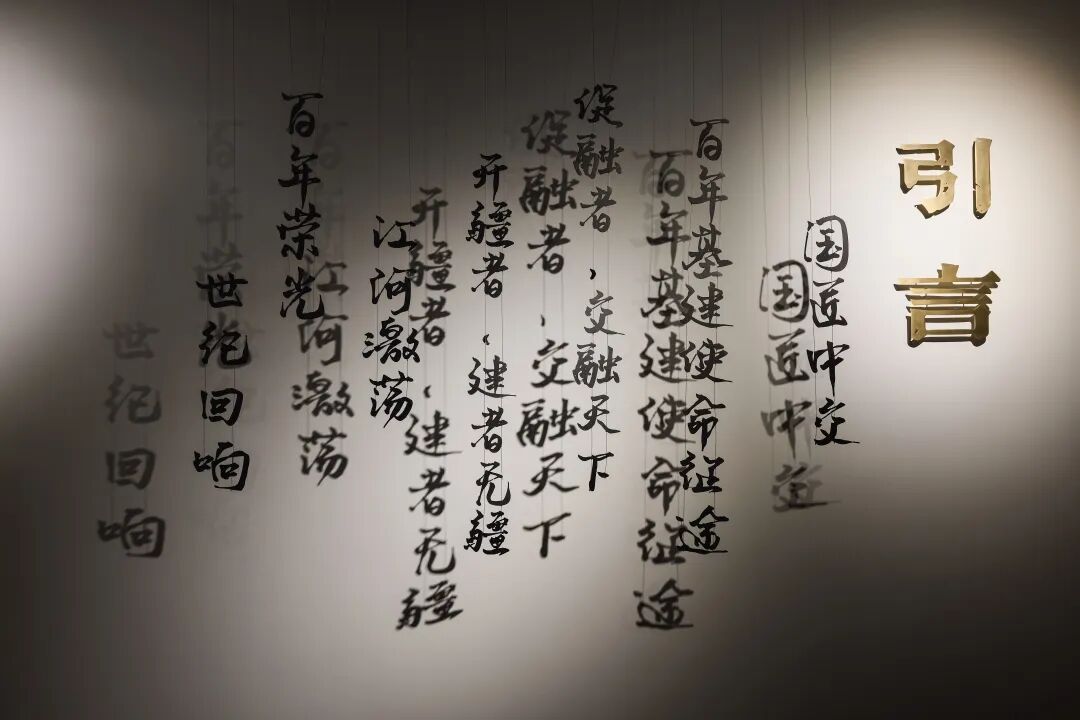 引言
国匠中交
百年基建使命征途
促融者，交融天下
开疆者，建者无疆
江河激荡
百年荣光
世纪回响